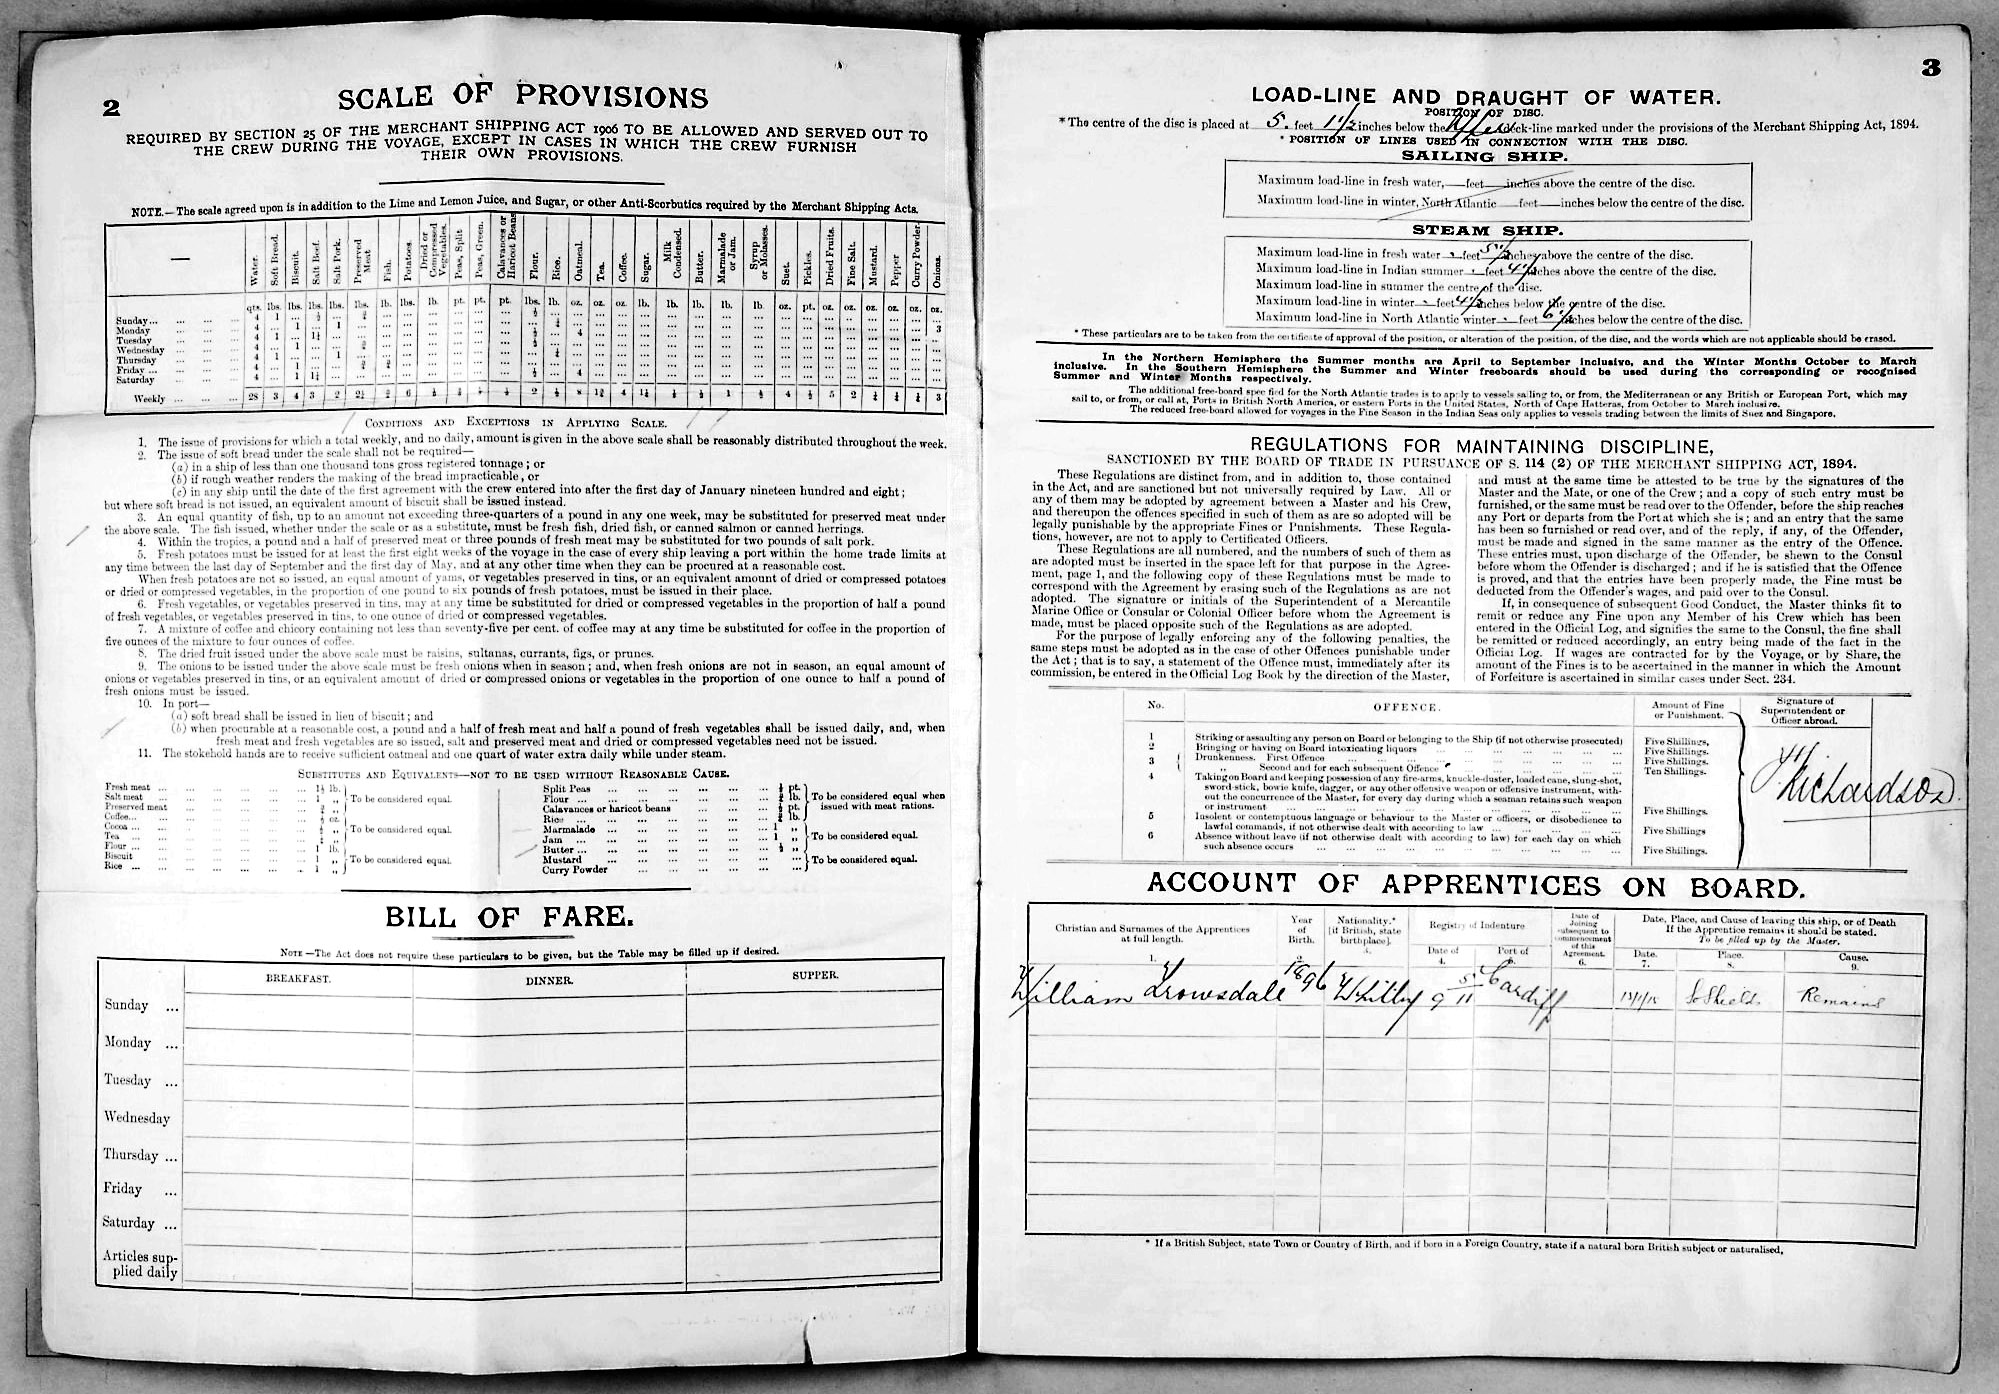 2
SCALE OF PROVISIONS
REQUIRED BY SECTION 25 OF THE MERCHANT SHIPPING ACT 1906 TO BE ALLOWED AND SERVED OUT TO
THE CREW DURING THE VOYAGE, EXCEPT IN CASES IN WHICH THE CREW FURNISH
THEIR OWN PROVISIONS.
NOTE.—The scale agreed upon is in addition to the Lime and Lemon Juice, and Sugar, or other Anti-Scorbutics required by the Merchant Shipping Acts.
— Water. Soft Bread. Biscuit. Salt Beef. Salt Pork. Preserved Meat Fish. Potatoes. Dried or Compressed Vegetables. Peas, Split Peas, Green. Calavances or Haricot Beans Flour. Rice. Oatmeal. Tea. Coffee. Sugar. Milk Condensed. Butter. Marmalade or Jam. Syrup or Molasses. Suet. Pickles. Dried Fruits. Fine Salt. Mustard. Pepper Curry Powder. Onions.
qts. lbs. lbs. lbs. lbs. lbs. lb. lbs. lb. pt. pt. pt. lbs. lb. oz. oz. oz. lb. lb. lb. lb. lb. oz. pt. oz. oz. oz. oz. oz. oz.
Sunday... 4 1
Monday 4 1 1 3
Tuesday 4 1 4
Wednesday 4 1
Thursday 4 1 1
Friday ... 4 1
Saturday 4 1 4
Weekly 28 3 4 3 2
CONDITIONS AND EXCEPTIONS IN APPLYING SCALE.
1. The issue of provisions for which a total weekly, and no daily, amount is given in the above scale shall be reasonably distributed throughout the week.
2. The issue of soft bread under the scale shall not be required—
(a) in a ship of less than one thousand tons gross registered tonnage; or
(b) if rough weather renders the making of the bread impracticable, or
(c) in any ship until the date of the first agreement with the crew entered into after the first day of January nineteen hundred and eight;
but where soft bread is not issued, an equivalent amount of biscuit shall be issued instead.
3. An equal quantity of fish, up to an amount not exceeding three-quarters of a pound in any one week, may be substituted for preserved meat under
the above scale. The fish issued, whether under the scale or as a substitute, must be fresh fish, dried fish, or canned salmon or canned herrings.
4. Within the tropics, a pound and a half of preserved meat or three pounds of fresh meat may be substituted for two pounds of salt pork.
5. Fresh potatoes must be issued for at least the first eight weeks of the voyage in the case of every ship leaving a port within the home trade limits at
any time between the last day of September and the first day of May, and at any other time when they can be procured at a reasonable cost.
When fresh potatoes are not so issued, an equal amount of yams, or vegetables preserved in tins, or an equivalent amount of dried or compressed potatoes
or dried or compressed vegetables, in the proportion of one pound to six pounds of fresh potatoes, must be issued in their place.
6. Fresh vegetables, or vegetables preserved in tins, may at any time be substituted for dried or compressed vegetables in the proportion of half a pound
of fresh vegetables, or vegetables preserved in tins, to one ounce of dried or compressed vegetables.
7. A mixture of coffee and chicory containing not less than seventy-five per cent. of coffee may at any time be substituted for coffee in the proportion of
five ounces of the mixture to four ounces of coffee.
8. The dried fruit issued under the above scale must be raisins, sultanas, currants, figs, or prunes.
9. The onions to be issued under the above scale must be fresh onions when in season; and, when fresh onions are not in season, an equal amount of
onions or vegetables preserved in tins, or an equivalent amount of dried or compressed onions or vegetables in the proportion of one ounce to half a pound of
fresh onions must be issued.
10. In port—
(a) soft bread shall be issued in lieu of biscuit; and
(b) when procurable at a reasonable cost, a pound and a half of fresh meat and half a pound of fresh vegetables shall be issued daily, and, when
fresh meat and fresh vegetables are so issued, salt and preserved meat and dried or compressed vegetables need not be issued.
11. The stokehold hands are to receive sufficient oatmeal and one quart of water extra daily while under steam.
SUBSTITUTES AND EQUIVALENTS—NOT TO BE USED WITHOUT REASONABLE CAUSE.
Fresh meat ... 1½ lb.
Salt meat ... 1 „ To be considered equal.
Preserved meat
Coffee...
Cocoa ... To be considered equal.
Tea
Flour ... 1 lb.
Biscuit 1 „ To be considered equal.
Rice ... 1 „
Split Peas
Flour ... To be considered equal when
Calavances or haricot beans issued with meat rations.
Rice ...
Marmalade 1 „
Jam 1 „ To be considered equal.
Butter ... ½ „
Mustard To be considered equal.
Curry Powder
BILL OF FARE.
NOTE—The Act does not require these particulars to be given, but the Table may be filled up if desired.
BREAKFAST. DINNER. SUPPER.
Sunday ...
Monday ...
Tuesday ...
Wednesday
Thursday ...
Friday ...
Saturday ...
Articles sup-
plied daily
3
LOAD-LINE AND DRAUGHT OF WATER.
POSITION OF DISC.
*The centre of the disc is placed at 5 feet 1½ inches below the Upper deck-line marked under the provisions of the Merchant Shipping Act, 1894.
* POSITION OF LINES USED IN CONNECTION WITH THE DISC.
SAILING SHIP.
Maximum load-line in fresh water,—feet—inches above the centre of the disc.
Maximum load-line in winter, North Atlantic —feet—inches below the centre of the disc.
STEAM SHIP.
Maximum load-line in fresh water - feet 5½ inches above the centre of the disc.
Maximum load-line in Indian summer - feet 4½ inches above the centre of the disc.
Maximum load-line in summer the centre of the disc.
Maximum load-line in winter - feet 4½ inches below the centre of the disc.
Maximum load-line in North Atlantic winter - feet 6½ inches below the centre of the disc.
* These particulars are to be taken from the certificate of approval of the position, or alteration of the position, of the disc, and the words which are not applicable should be erased.
In the Northern Hemisphere the Summer months are April to September inclusive, and the Winter Months October to March
inclusive. In the Southern Hemisphere the Summer and Winter freeboards should be used during the corresponding or recognised
Summer and Winter Months respectively.
The additional free-board specified for the North Atlantic trades is to apply to vessels sailing to, or from, the Mediterranean or any British or European Port, which may
sail to, or from, or call at, Ports in British North America, or eastern Ports in the United States, North of Cape Hatteras, from October to March inclusive.
The reduced free-board allowed for voyages in the Fine Season in the Indian Seas only applies to vessels trading between the limits of Suez and Singapore.
REGULATIONS FOR MAINTAINING DISCIPLINE,
SANCTIONED BY THE BOARD OF TRADE IN PURSUANCE OF S. 114 (2) OF THE MERCHANT SHIPPING ACT, 1894.
These Regulations are distinct from, and in addition to, those contained
in the Act, and are sanctioned but not universally required by Law. All or
any of them may be adopted by agreement between a Master and his Crew,
and thereupon the offences specified in such of them as are so adopted will be
legally punishable by the appropriate Fines or Punishments. These Regula-
tions, however, are not to apply to Certificated Officers.
These Regulations are all numbered, and the numbers of such of them as
are adopted must be inserted in the space left for that purpose in the Agree-
ment, page 1, and the following copy of these Regulations must be made to
correspond with the Agreement by erasing such of the Regulations as are not
adopted. The signature or initials of the Superintendent of a Mercantile
Marine Office or Consular or Colonial Officer before whom the Agreement is
made, must be placed opposite such of the Regulations as are adopted.
For the purpose of legally enforcing any of the following penalties, the
same steps must be adopted as in the case of other Offences punishable under
the Act; that is to say, a statement of the Offence must, immediately after its
commission, be entered in the Official Log Book by the direction of the Master,
and must at the same time be attested to be true by the signatures of the
Master and the Mate, or one of the Crew; and a copy of such entry must be
furnished, or the same must be read over to the Offender, before the ship reaches
any Port or departs from the Port at which she is; and an entry that the same
has been so furnished or read over, and of the reply, if any, of the Offender,
must be made and signed in the same manner as the entry of the Offence.
These entries must, upon discharge of the Offender, be shewn to the Consul
before whom the Offender is discharged; and if he is satisfied that the Offence
is proved, and that the entries have been properly made, the Fine must be
deducted from the Offender's wages, and paid over to the Consul.
If, in consequence of subsequent Good Conduct, the Master thinks fit to
remit or reduce any Fine upon any Member of his Crew which has been
entered in the Official Log, and signifies the same to the Consul, the fine shall
be remitted or reduced accordingly, an entry being made of the fact in the
Official Log. If wages are contracted for by the Voyage, or by Share, the
amount of the Fines is to be ascertained in the manner in which the Amount
of Forfeiture is ascertained in similar cases under Sect. 234.
No. OFFENCE. Amount of Fine or Punishment. Signature of Superintendent or Officer abroad.
1 Striking or assaulting any person on Board or belonging to the Ship (if not otherwise prosecuted) Five Shillings,
2 Bringing or having on Board intoxicating liquors Five Shillings.
3 Drunkenness. First Offence Five Shillings.
„ Second and for each subsequent Offence Ten Shillings.
4 Taking on Board and keeping possession of any fire-arms, knuckle-duster, loaded cane, slung-shot,
sword-stick, bowie knife, dagger, or any other offensive weapon or offensive instrument, with-
out the concurrence of the Master, for every day during which a seaman retains such weapon
or instrument Five Shillings.
5 Insolent or contemptuous language or behaviour to the Master or officers, or disobedience to
lawful commands, if not otherwise dealt with according to law Five Shillings
6 Absence without leave (if not otherwise dealt with according to law) for each day on which
such absence occurs Five Shillings.
Richardson.
ACCOUNT OF APPRENTICES ON BOARD.
Christian and Surnames of the Apprentices at full length. 1. Year of Birth. 2. Nationality.* [if British, state birthplace]. 3. Registry of Indenture Date of 4. Port of 5. Date of Joining subsequent to commencement of this Agreement. 6. Date, Place, and Cause of leaving this ship, or of Death
If the Apprentice remains it should be stated.
To be filled up by the Master.
Date. 7. Place. 8. Cause. 9.
William Trowsdale 1896 Whitby 9 5 11 Cardiff So Shields Remains
* If a British Subject, state Town or Country of Birth, and if born in a Foreign Country, state if a natural born British subject or naturalised.